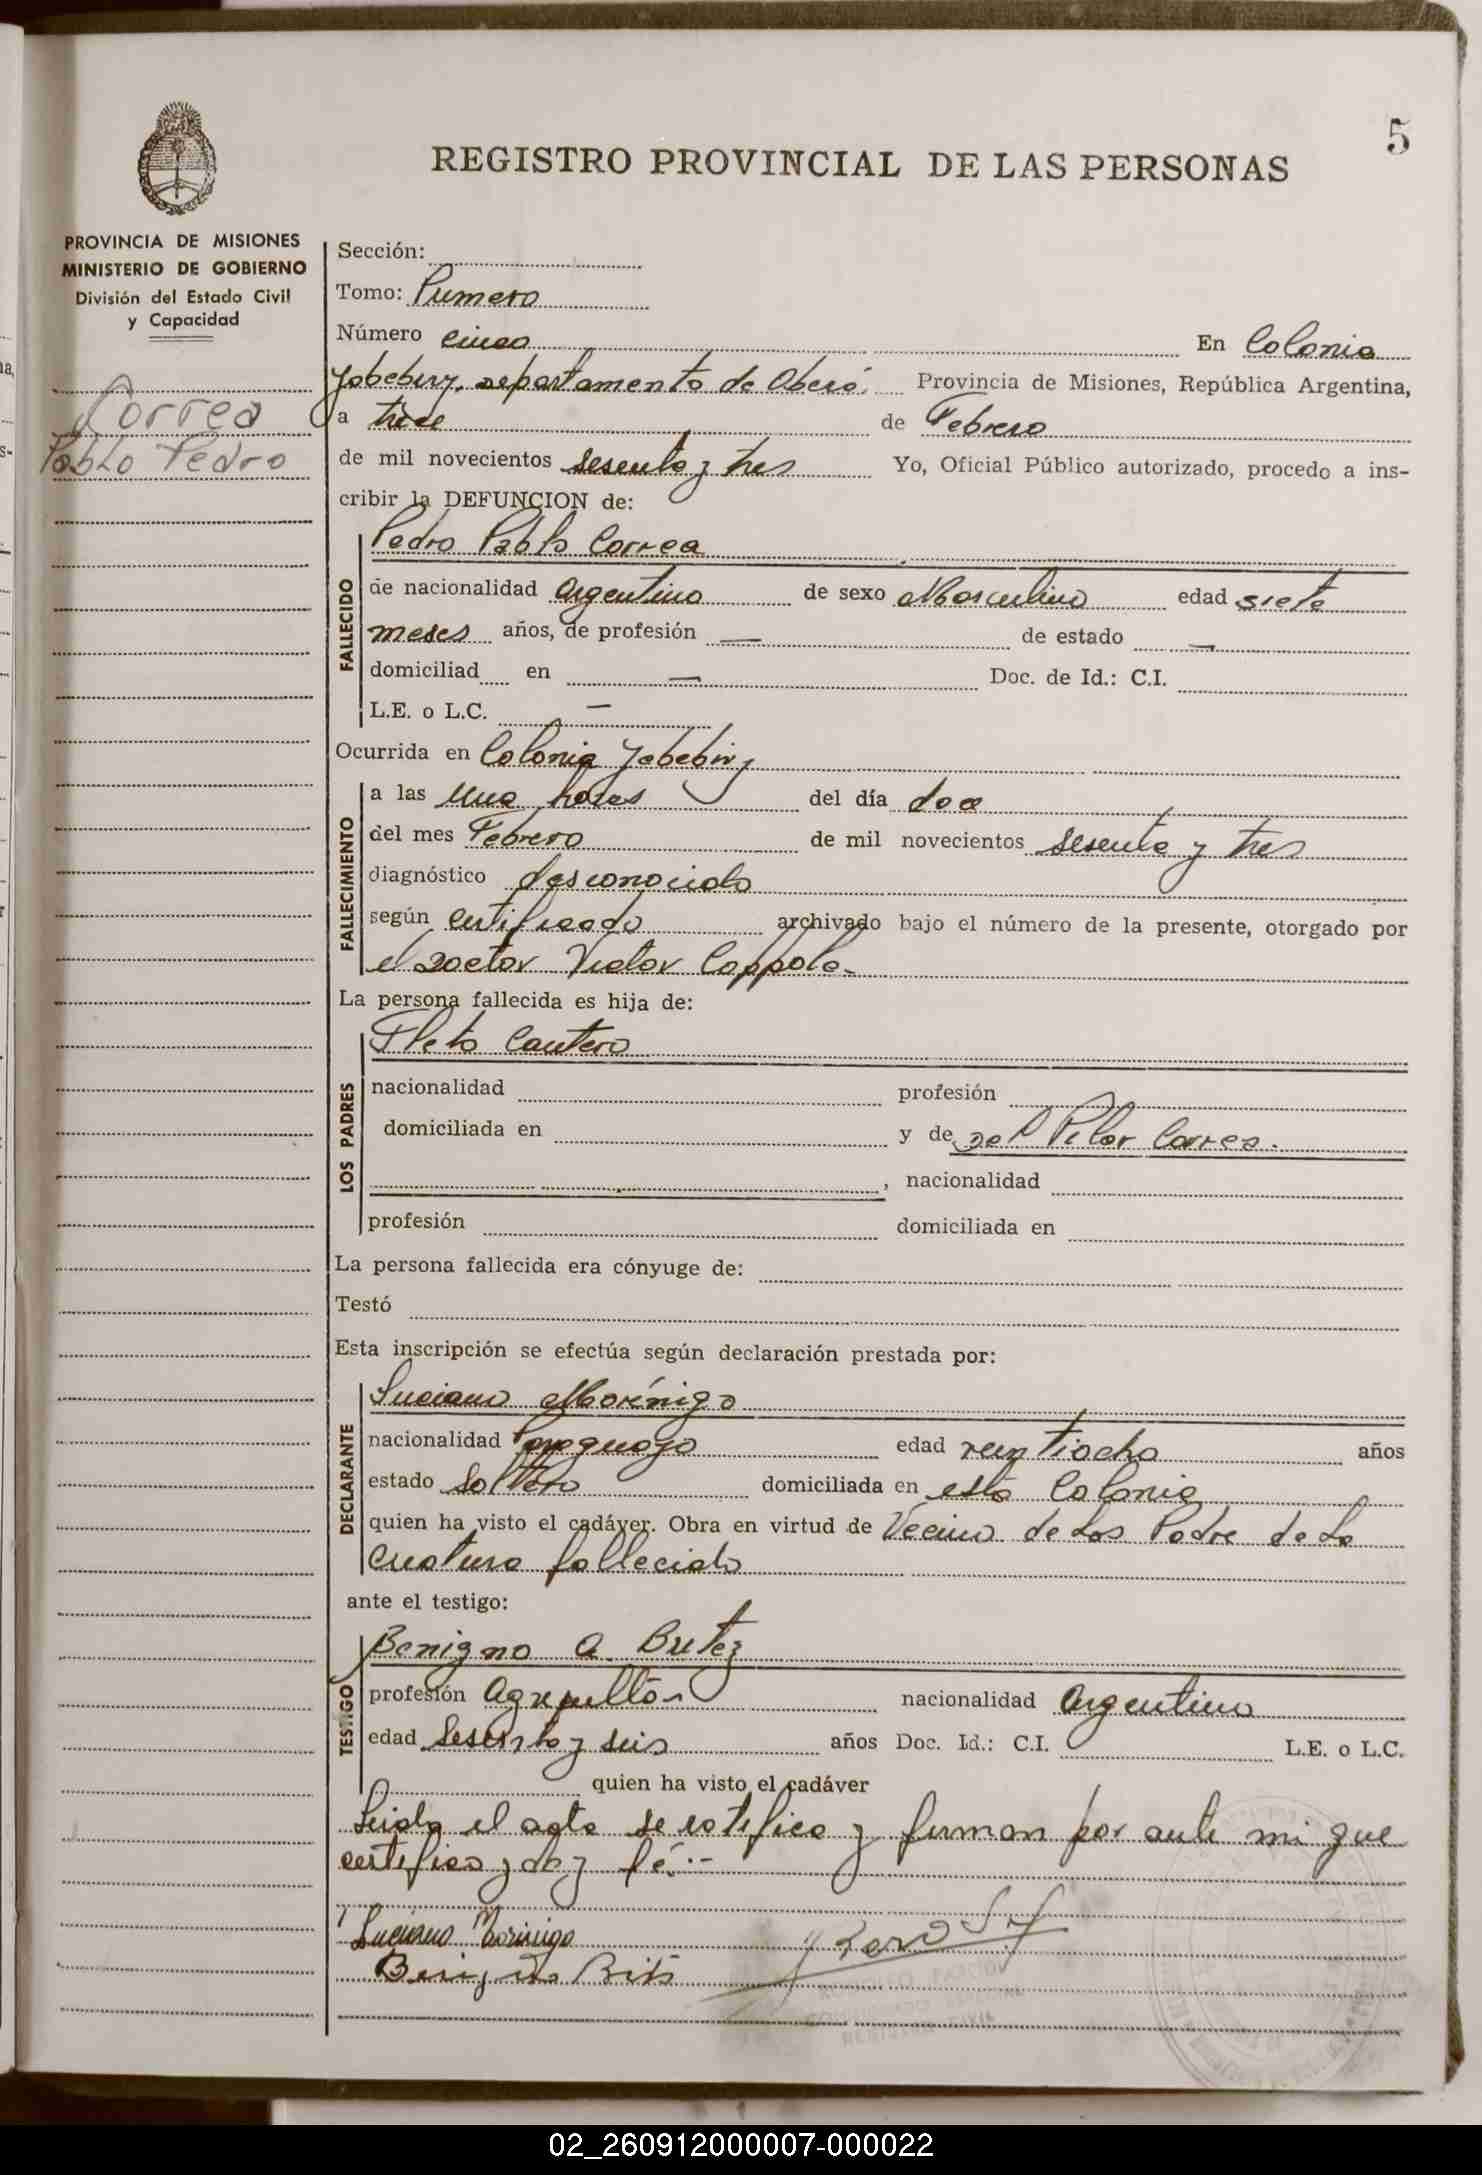 5
REGISTRO PROVINCIAL DE LAS PERSONAS
PROVINCIA DE MISIONES
MINISTERIO DE GOBIERNO
División del Estado Civil
y Capacidad
Correa
Pablo Pedro
Sección:
Tomo: Primero
Número cinco En Colonia
Yabebiry, departamento de Oberá, Provincia de Misiones, República Argentina,
a trece de Febrero
de mil novecientos sesenta y tres Yo, Oficial Público autorizado, procedo a ins-
cribir la DEFUNCION de:
FALLECIDO
Pedro Pablo Correa
de nacionalidad Argentino de sexo Masculino edad siete
meses años, de profesión — de estado —
domiciliad en — Doc. de Id.: C.I.
L.E. o L.C. —
Ocurrida en Colonia Yabebiry
FALLECIMIENTO
a las una horas del día doce
del mes Febrero de mil novecientos sesenta y tres
diagnóstico desconocido
según certificado archivado bajo el número de la presente, otorgado por
el Doctor Victor Coppola.
La persona fallecida es hija de:
LOS PADRES
Cantero
nacionalidad profesión
domiciliada en y de Pilar Correa.
, nacionalidad
profesión domiciliada en
La persona fallecida era cónyuge de:
Testó
Esta inscripción se efectúa según declaración prestada por:
DECLARANTE
Luciano Morínigo
nacionalidad Paraguayo edad veintiocho años
estado Soltero domiciliada en esta Colonia
quien ha visto el cadáver. Obra en virtud de Vecino de los Padre de la
criatura fallecido
ante el testigo:
TESTIGO
Benigno A. Britez
profesión Agricultor nacionalidad Argentino
edad sesenta y seis años Doc. Id.: C.I. L.E. o L.C.
quien ha visto el cadáver
Leida el acta se ratifica y firman por ante mi que
certifico y doy fé.--
Luciano Morinigo
REGISTRO CIVIL
02_260912000007-000022